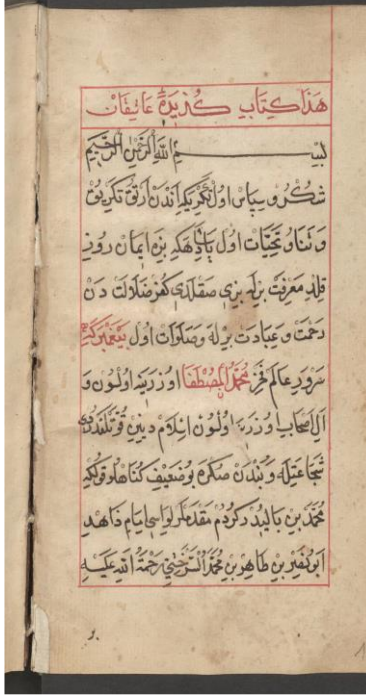 هَذَا كِتَابِ كُزِيدَهْ عَاشِقَانْ
بِسْمِ اللّٰهِ الرَّحْمٰنِ الرَّحِيمِ
شُكْرُ و سِپَاس اول تَكْرِيَه اَندَنْ اَرتُقْ تَكْرِي يُوق
وَ ثَنَا وُ تَحِيَّات اول پَادِشَاهَكِه بِزَه اِيمَان رُوزِى
قِلدِ مَعْرِفَت بِرْلَه بِزِى صَقْلَدِى كُفر ضَلَالَت دَنْ
رَحْمَت وَ عِبَادَت بِرْلَه وَصَلَوَات اول پَيْغَمْبَرَكِه
سَرْوَرِ عَالَم فَخْرِ مُحَمَّدُ الْمُصْطَفَا اوزَرِينَه اولسُون وَ
آلِ اَصْحَابِ اوزَرِينَه اولسُون اِسْلَام دِينِنِ قُوَّتْلَندُردِى
شُجَاعَتِيلَه وَ بُندَنْ صُكْرَه بُو ضَعِيف كُنَاهلُو قُولكِه
مُحَمَّد بِن بَالِى دُر
اَبُو نَصِير بِن طَاهِر بِن مُحَمَّد السَّرَخْسِى رَحْمَةُ اللّٰهِ عَلَيْهِ